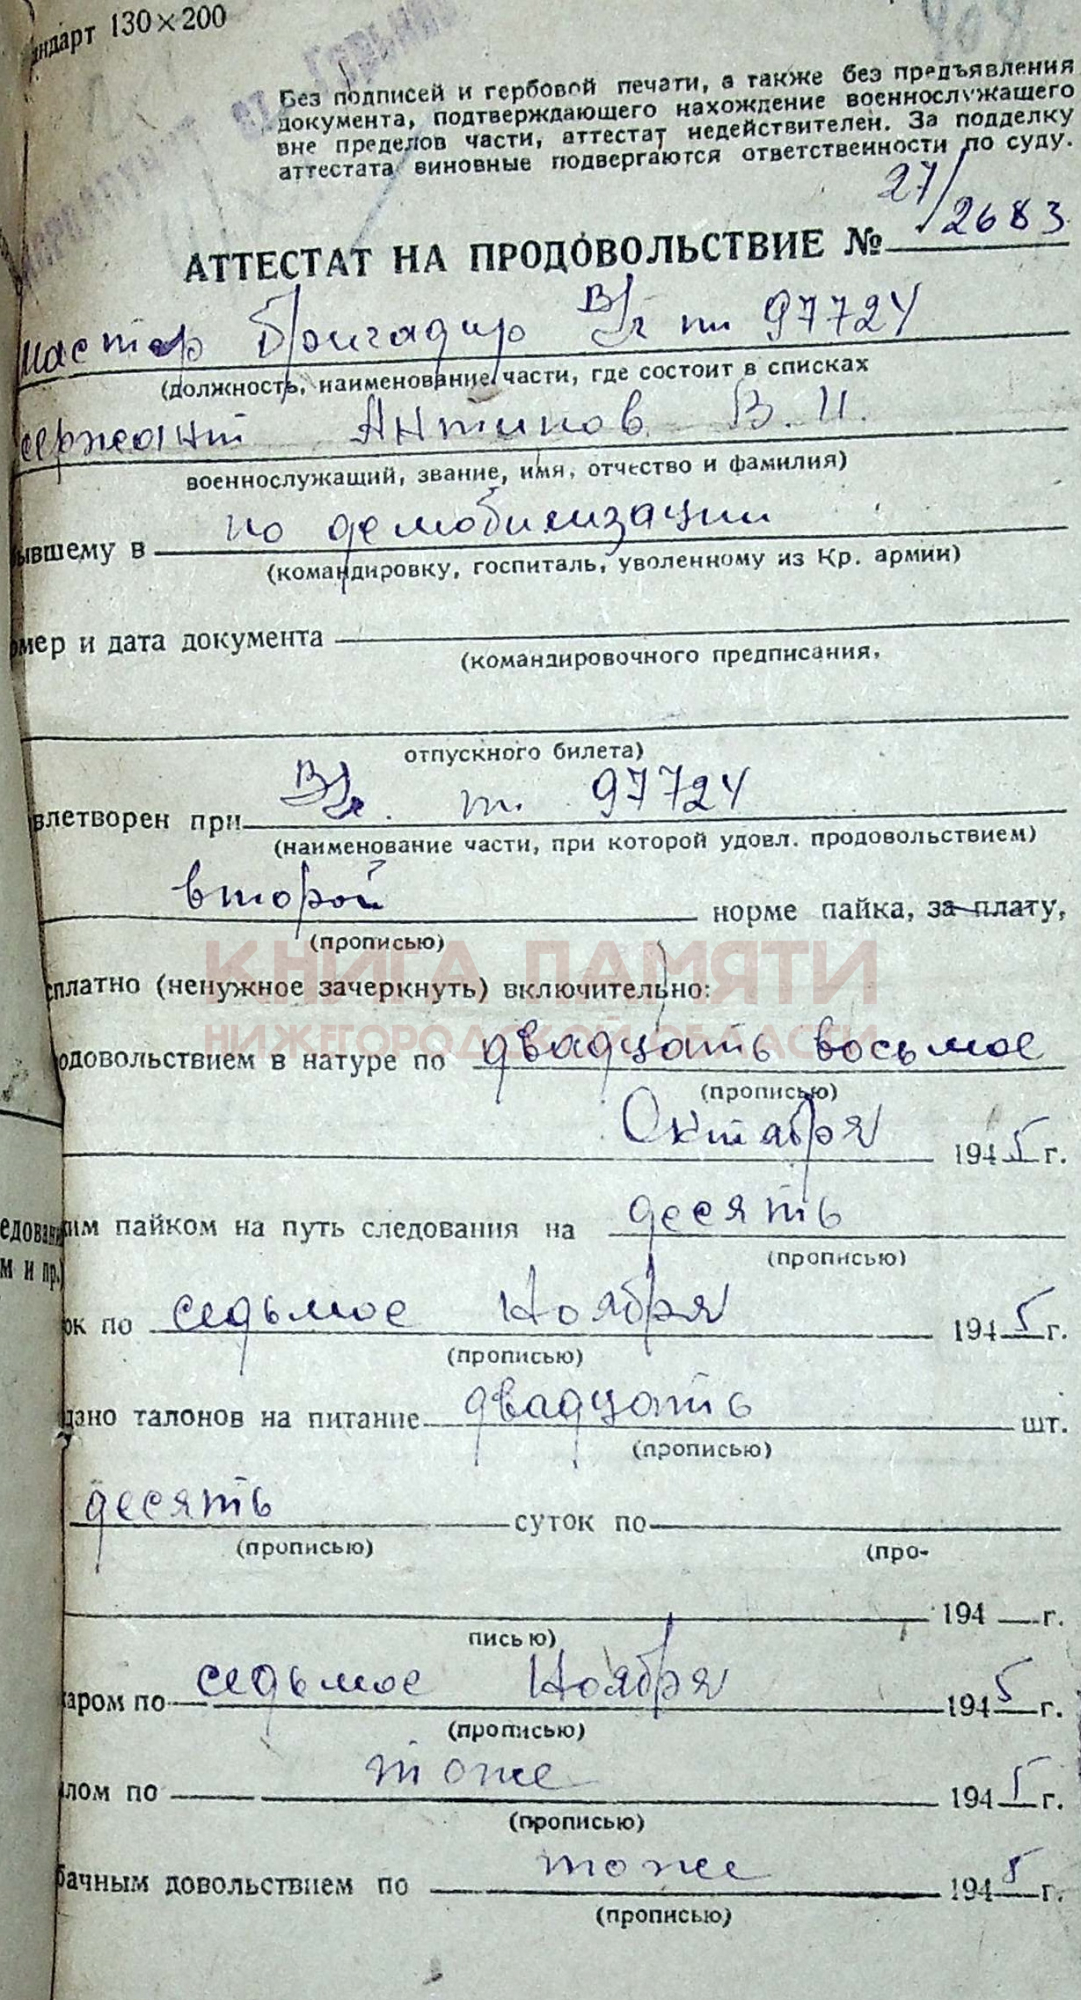 андарт 130×200
Без подписей и гербовой печати, а также без предъявления
документа, подтверждающего нахождение военнослужащего
вне пределов части, аттестат недействителен. За подделку
аттестата виновные подвергаются ответственности по суду.
АТТЕСТАТ НА ПРОДОВОЛЬСТВИЕ № 27/2683
мастер бригадир В/ч пп 97724
(должность, наименование части, где состоит в списках
сержант Антипов В. И.
военнослужащий, звание, имя, отчество и фамилия)
бывшему в по демобилизации
(командировку, госпиталь, уволенному из Кр. армии)
омер и дата документа
(командировочного предписания,
отпускного билета)
влетворен при В/ч. пп. 97724
(наименование части, при которой удовл. продовольствием)
второй норме пайка, за плату,
(прописью)
КНИГА ПАМЯТИ
сплатно (ненужное зачеркнуть) включительно:
НИЖЕГОРОДСКОЙ ОБЛАСТИ
одовольствием в натуре по двадцать восьмое
(прописью)
Октября 1945 г.
едован
хим пайком на путь следования на десять
(прописью)
м и пр.)
ок по седьмое Ноября 1945 г.
(прописью)
дано талонов на питание двадцать шт.
(прописью)
десять суток по
(прописью) (про-
194 г.
писью)
харом по седьмое Ноября 1945 г.
(прописью)
лом по тоже 1945 г.
(прописью)
бачным довольствием по тоже 1945 г.
(прописью)